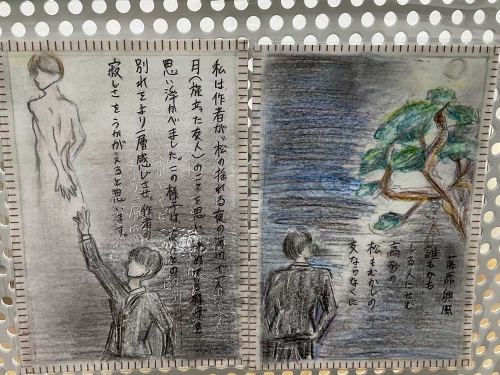 藤原興風
誰をかも
しる人にせむ
高砂の
松もむかしの
友ならなくに
私は作者が、松の揺れる夜の海辺で
月(旅立った友人)のことを思い
思い浮かべました。この様子は、との
別れをより一層感じさせ、作者の
寂しさをうかがえると思います。